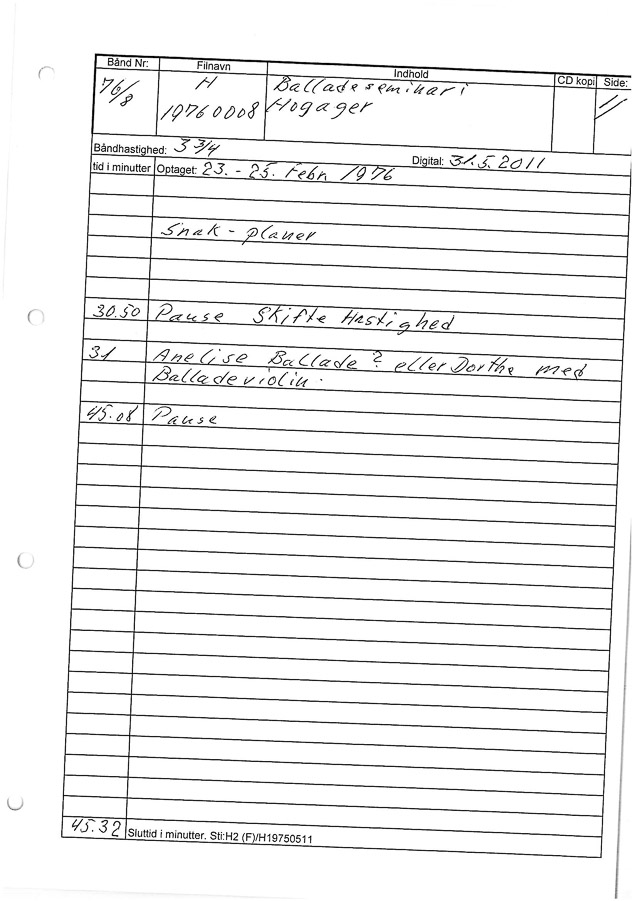 Bånd Nr: Filnavn Indhold CD kopi Side:
76/8 H Balladeseminar i
19760008 Hogager 1/
Båndhastighed: 3 3/4 Digital: 31.5.2011
tid i minutter Optaget: 23. - 25. Febr. 1976
Snak - planer
30.50 Pause Skifte Hastighed
31 Anelise Ballade ? eller Dorthe med
Balladeviolin.
45.08 Pause
45.32 Sluttid i minutter. Sti:H2 (F)/H19750511